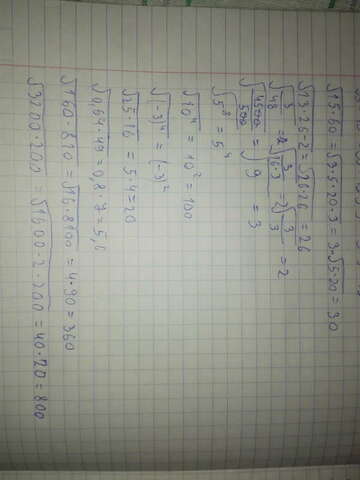 √15·60 = √3·5·20·3 = 3·√5·20 = 30
√13·26·2 = √26·26 = 26
√4500/500 = √9 = 3
√5⁸ = 5⁴
√10⁴ = 10² = 100
√(-3)⁴ = (-3)²
√25·16 = 5·4 = 20
√0,64·49 = 0,8·7 = 5,6
√160·810 = √16·8100 = 4·90 = 360
√3200·200 = √1600·2·200 = 40·20 = 800